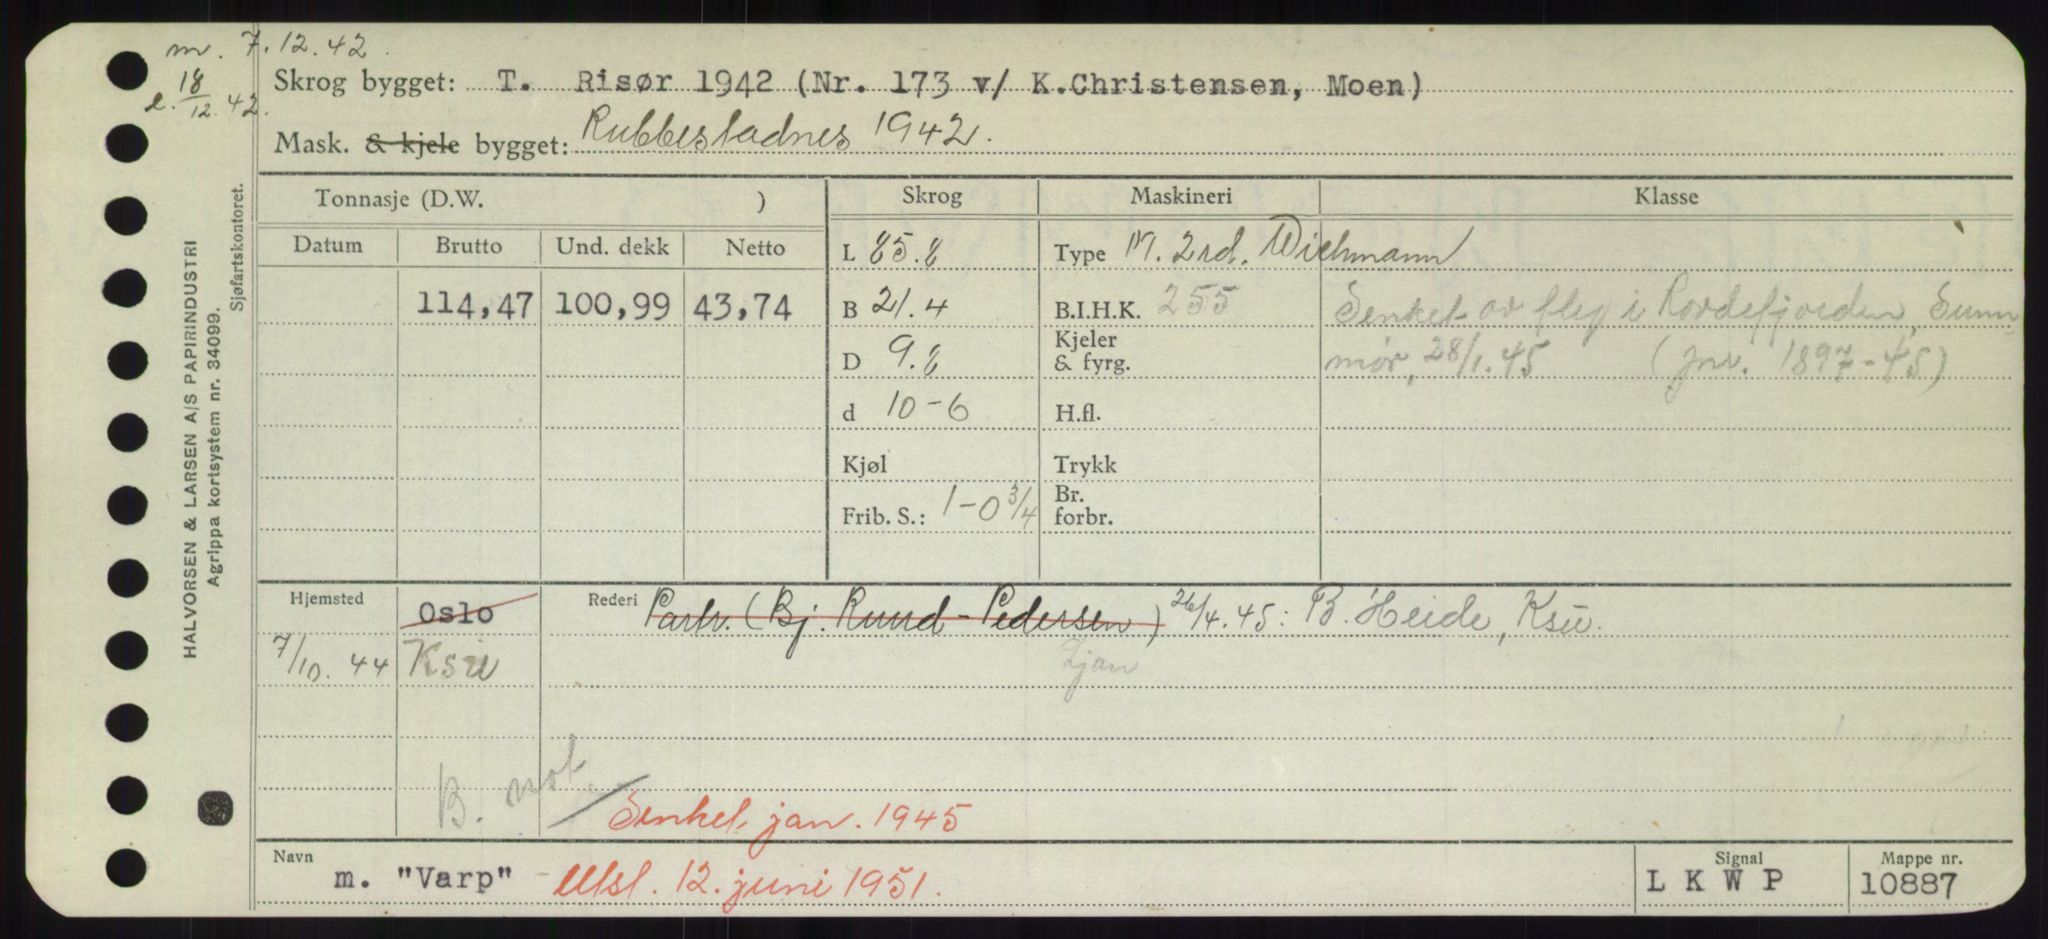 m. 7.12.42.
e. 18/12.42.
Skrog bygget: T. Risør 1942 (Nr. 173 v/ K.Christensen, Moen)
Mask. & kjele bygget: Rubbestadnes 1942.
Tonnasje (D.W. )
Skrog
Maskineri
Klasse
Datum
Brutto
Und. dekk
Netto
114,47
100,99
43,74
L 85.8
B 21.4
D 9.8
d 10-6
Kjøl
Frib. S.: 1-0 3/4
Type M. 2 sd. Wichmann
B.I.H.K. 255
Kjeler
& fyrg.
H.fl.
Trykk
Br.
forbr.
Senket av fly i Rovdefjorden, Sunn-
mør, 28/1.45 (jnr. 1897-45)
Hjemsted
Oslo
Rederi Partr. (Bj. Ruud-Pedersen) 26/4.45: B. Heide, Ksu.
7/10.44 Ksu
Ljan
B. not
Senket jan. 1945
Navn
m. "Varp" Utsl. 12. juni 1951.
Signal
L K W P
Mappe nr.
10887
HALVORSEN & LARSEN A/S PAPIRINDUSTRI
Agrippa kortsystem nr. 34099.
Sjøfartskontoret.